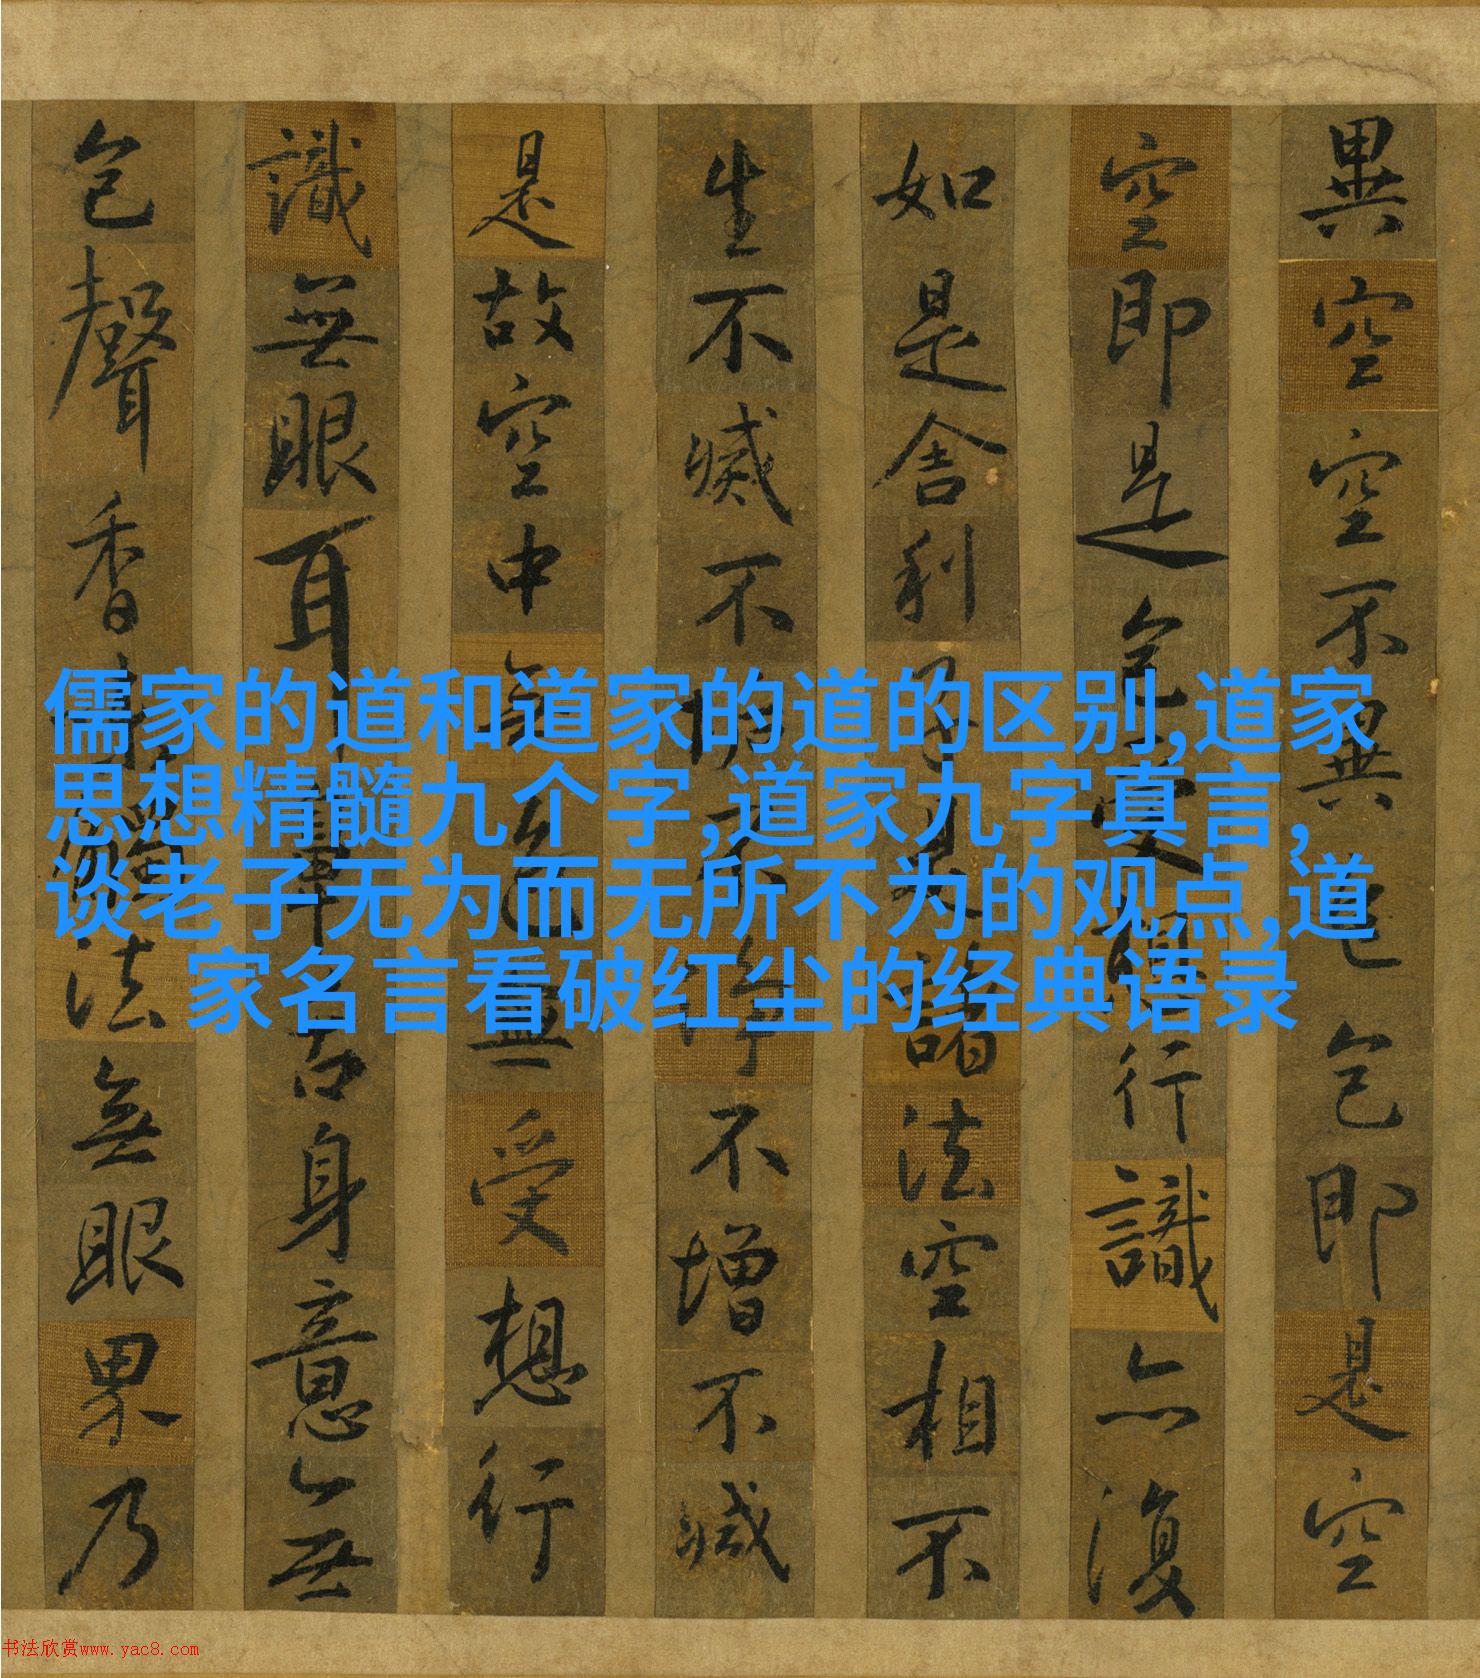 異空空不異色色即是空
空即是色受想行識亦復
如是舍利子是諸法空相不
生不滅不垢不淨不增不減
是故空中無色無受想行
識無眼耳鼻舌身意無
色聲香味觸法無眼界乃
儒家的道和道家的道的区别,道家
思想精髓九个字,道家九字真言,
谈老子无为而无所不为的观点,道
家名言看破红尘的经典语录
书法欣赏www.yac8.com